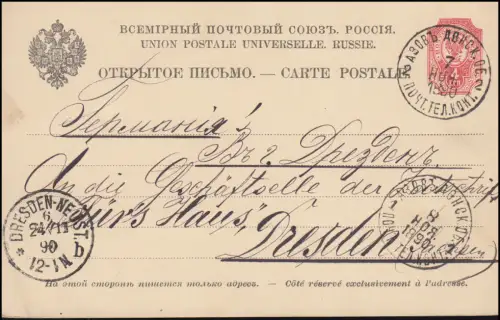 ВСЕМІРНЫЙ ПОЧТОВЫЙ СОЮЗЪ. РОССІЯ.
UNION POSTALE UNIVERSELLE. RUSSIE.
ОТКРЫТОЕ ПИСЬМО. — CARTE POSTALE.
АЗОВЪ ДОНСК. ОБ.
7
НОЯ
1890
ПОЧТ. ТЕЛ. КОН.
Германія
Въ г. Дрезденъ
An die Geschäftselle der Zeitschrift
"Fürs Haus", Dresden
8
НОЯ
1890
DRESDEN-NEUST.
6
21/11
90
12-1N
b
На этой сторонѣ пишется только адресъ. — Côté réservé exclusivement à l'adresse.